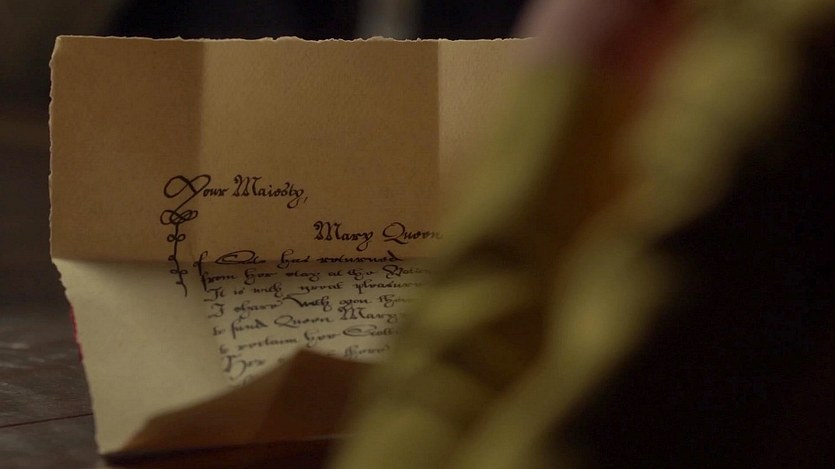 Your Maiesty,
Mary Queen
of Scots has returned
from her stay at the
It is with great pleasure
I share with you
to fund Queen Mary
to reclaim her
Her